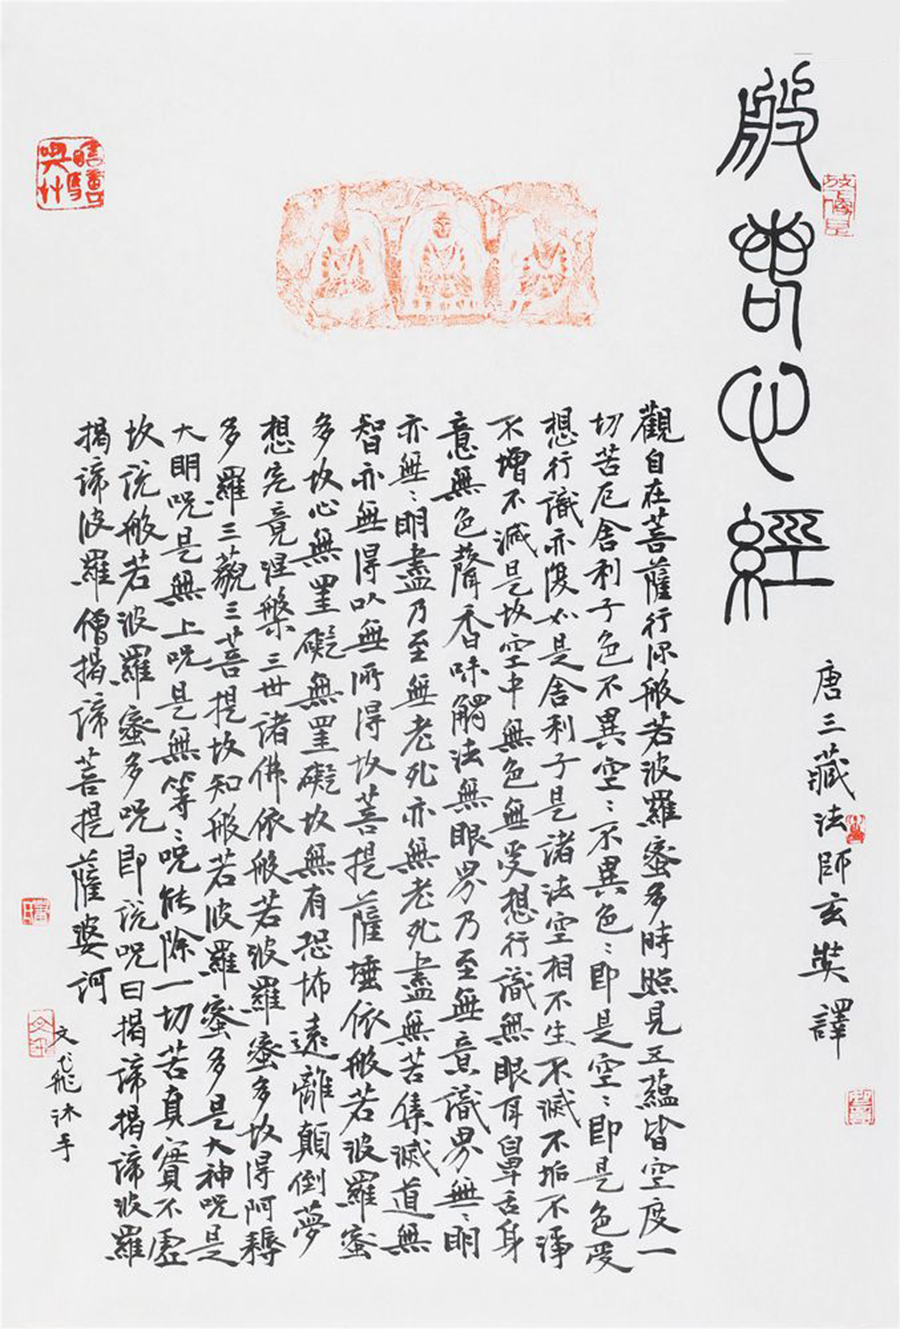 般若心經
唐三藏法師玄奘譯
觀自在菩薩行深般若波羅蜜多時照見五蘊皆空度一
切苦厄舍利子色不異空〻不異色〻即是空〻即是色受
想行識亦復如是舍利子是諸法空相不生不滅不垢不淨
不增不減是故空中無色無受想行識無眼耳鼻舌身
意無色聲香味觸法無眼界乃至無意識界無〻明
亦無〻明盡乃至無老死亦無老死盡無苦集滅道無
智亦無得以無所得故菩提薩埵依般若波羅蜜
多故心無罣礙無罣礙故無有恐怖遠離顛倒夢
想究竟涅槃三世諸佛依般若波羅蜜多故得阿耨
多羅三藐三菩提故知般若波羅蜜多是大神咒是
大明咒是無上咒是無等〻咒能除一切苦真實不虛
故說般若波羅蜜多咒即說咒曰揭諦揭諦波羅
揭諦波羅僧揭諦菩提薩婆訶
文飛沐手